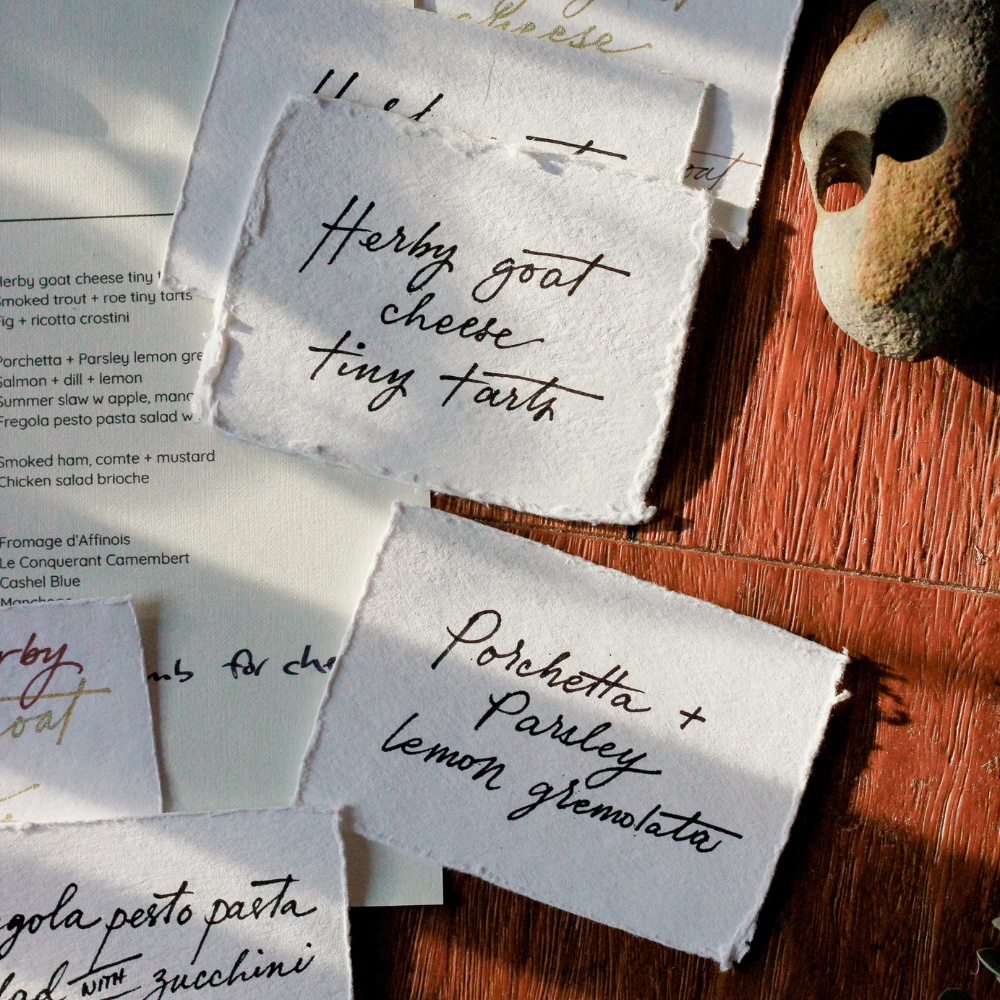 cheese
oat
Herby goat
cheese
tiny tarts
Herby goat cheese tiny
Smoked trout + roe tiny tarts
Fig + ricotta crostini
Porchetta + Parsley lemon gre
Salmon + dill + lemon
Summer slaw w apple, mang
Fregola pesto pasta salad w
Smoked ham, comte + mustard
Chicken salad brioche
Fromage d'Affinois
Le Conquerant Camembert
Cashel Blue
Manchego
for che
rby
oat
Porchetta +
Parsley
lemon gremolata
gola pesto pasta
lad WITH zucchini